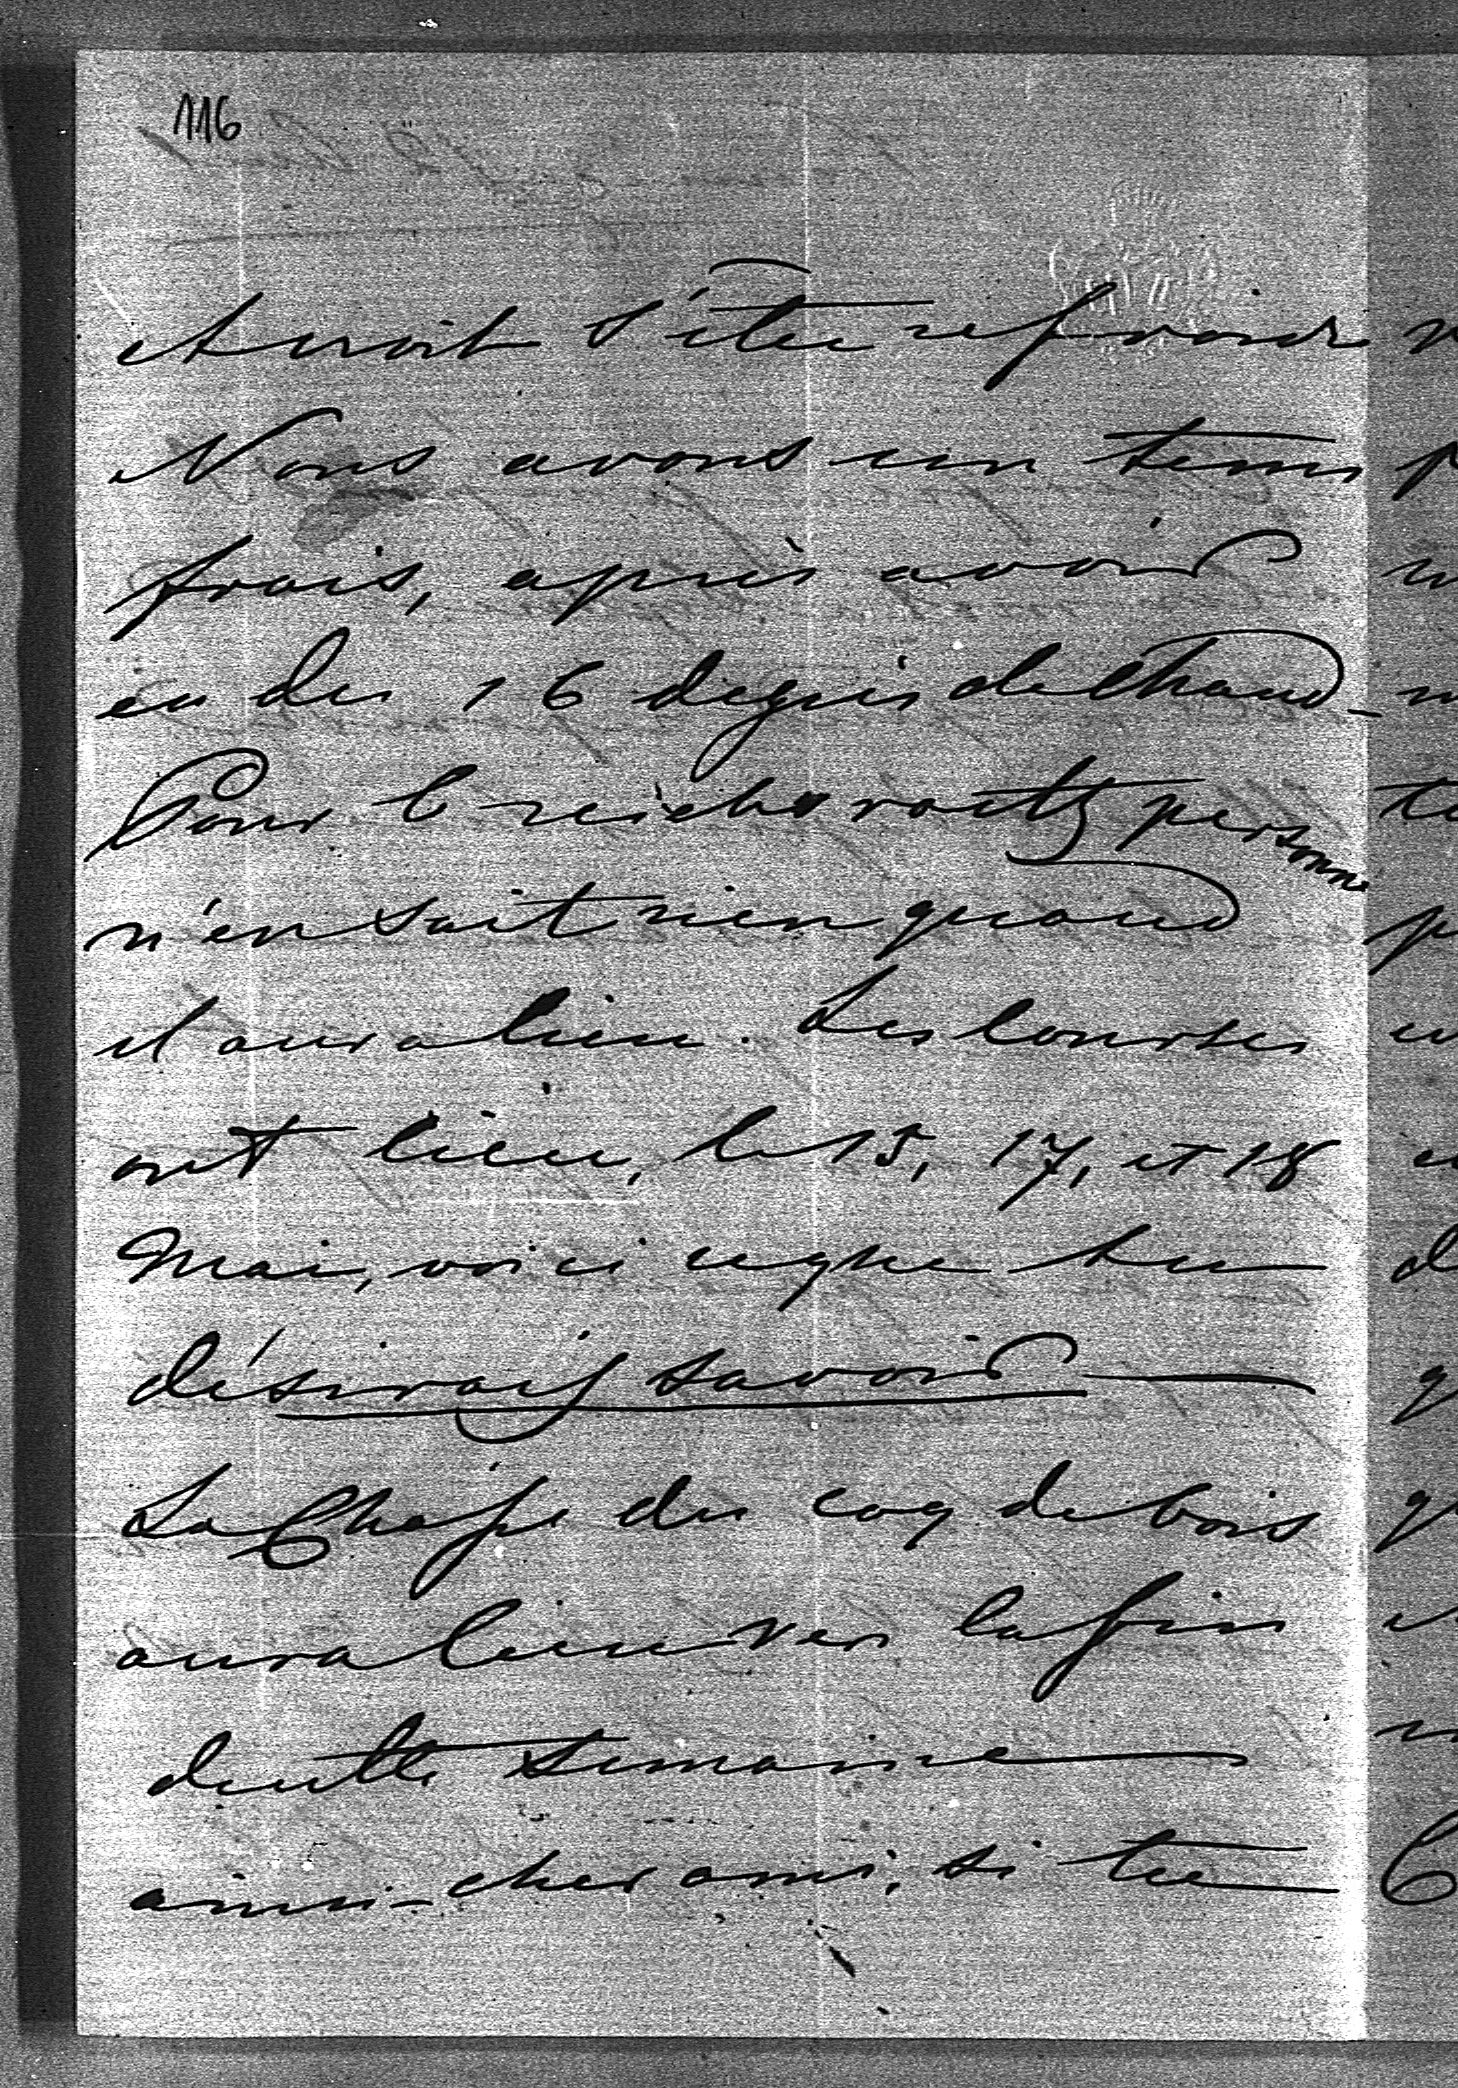 116
et croit s'être refroidi
Nous avons un tems
frais, après avoir
eu des 16 degrés de Chaud_
Pour le reichsrath personne
n'en sait rien quand
il aura lieu. Les courses
ont lieu, le 15, 17, et 18
Mai, voici ce que tu
désirais savoir
La Chasse du coq de bois
aura lieu vers la fin
de cette semaine
ainsi - cher ami, si tu